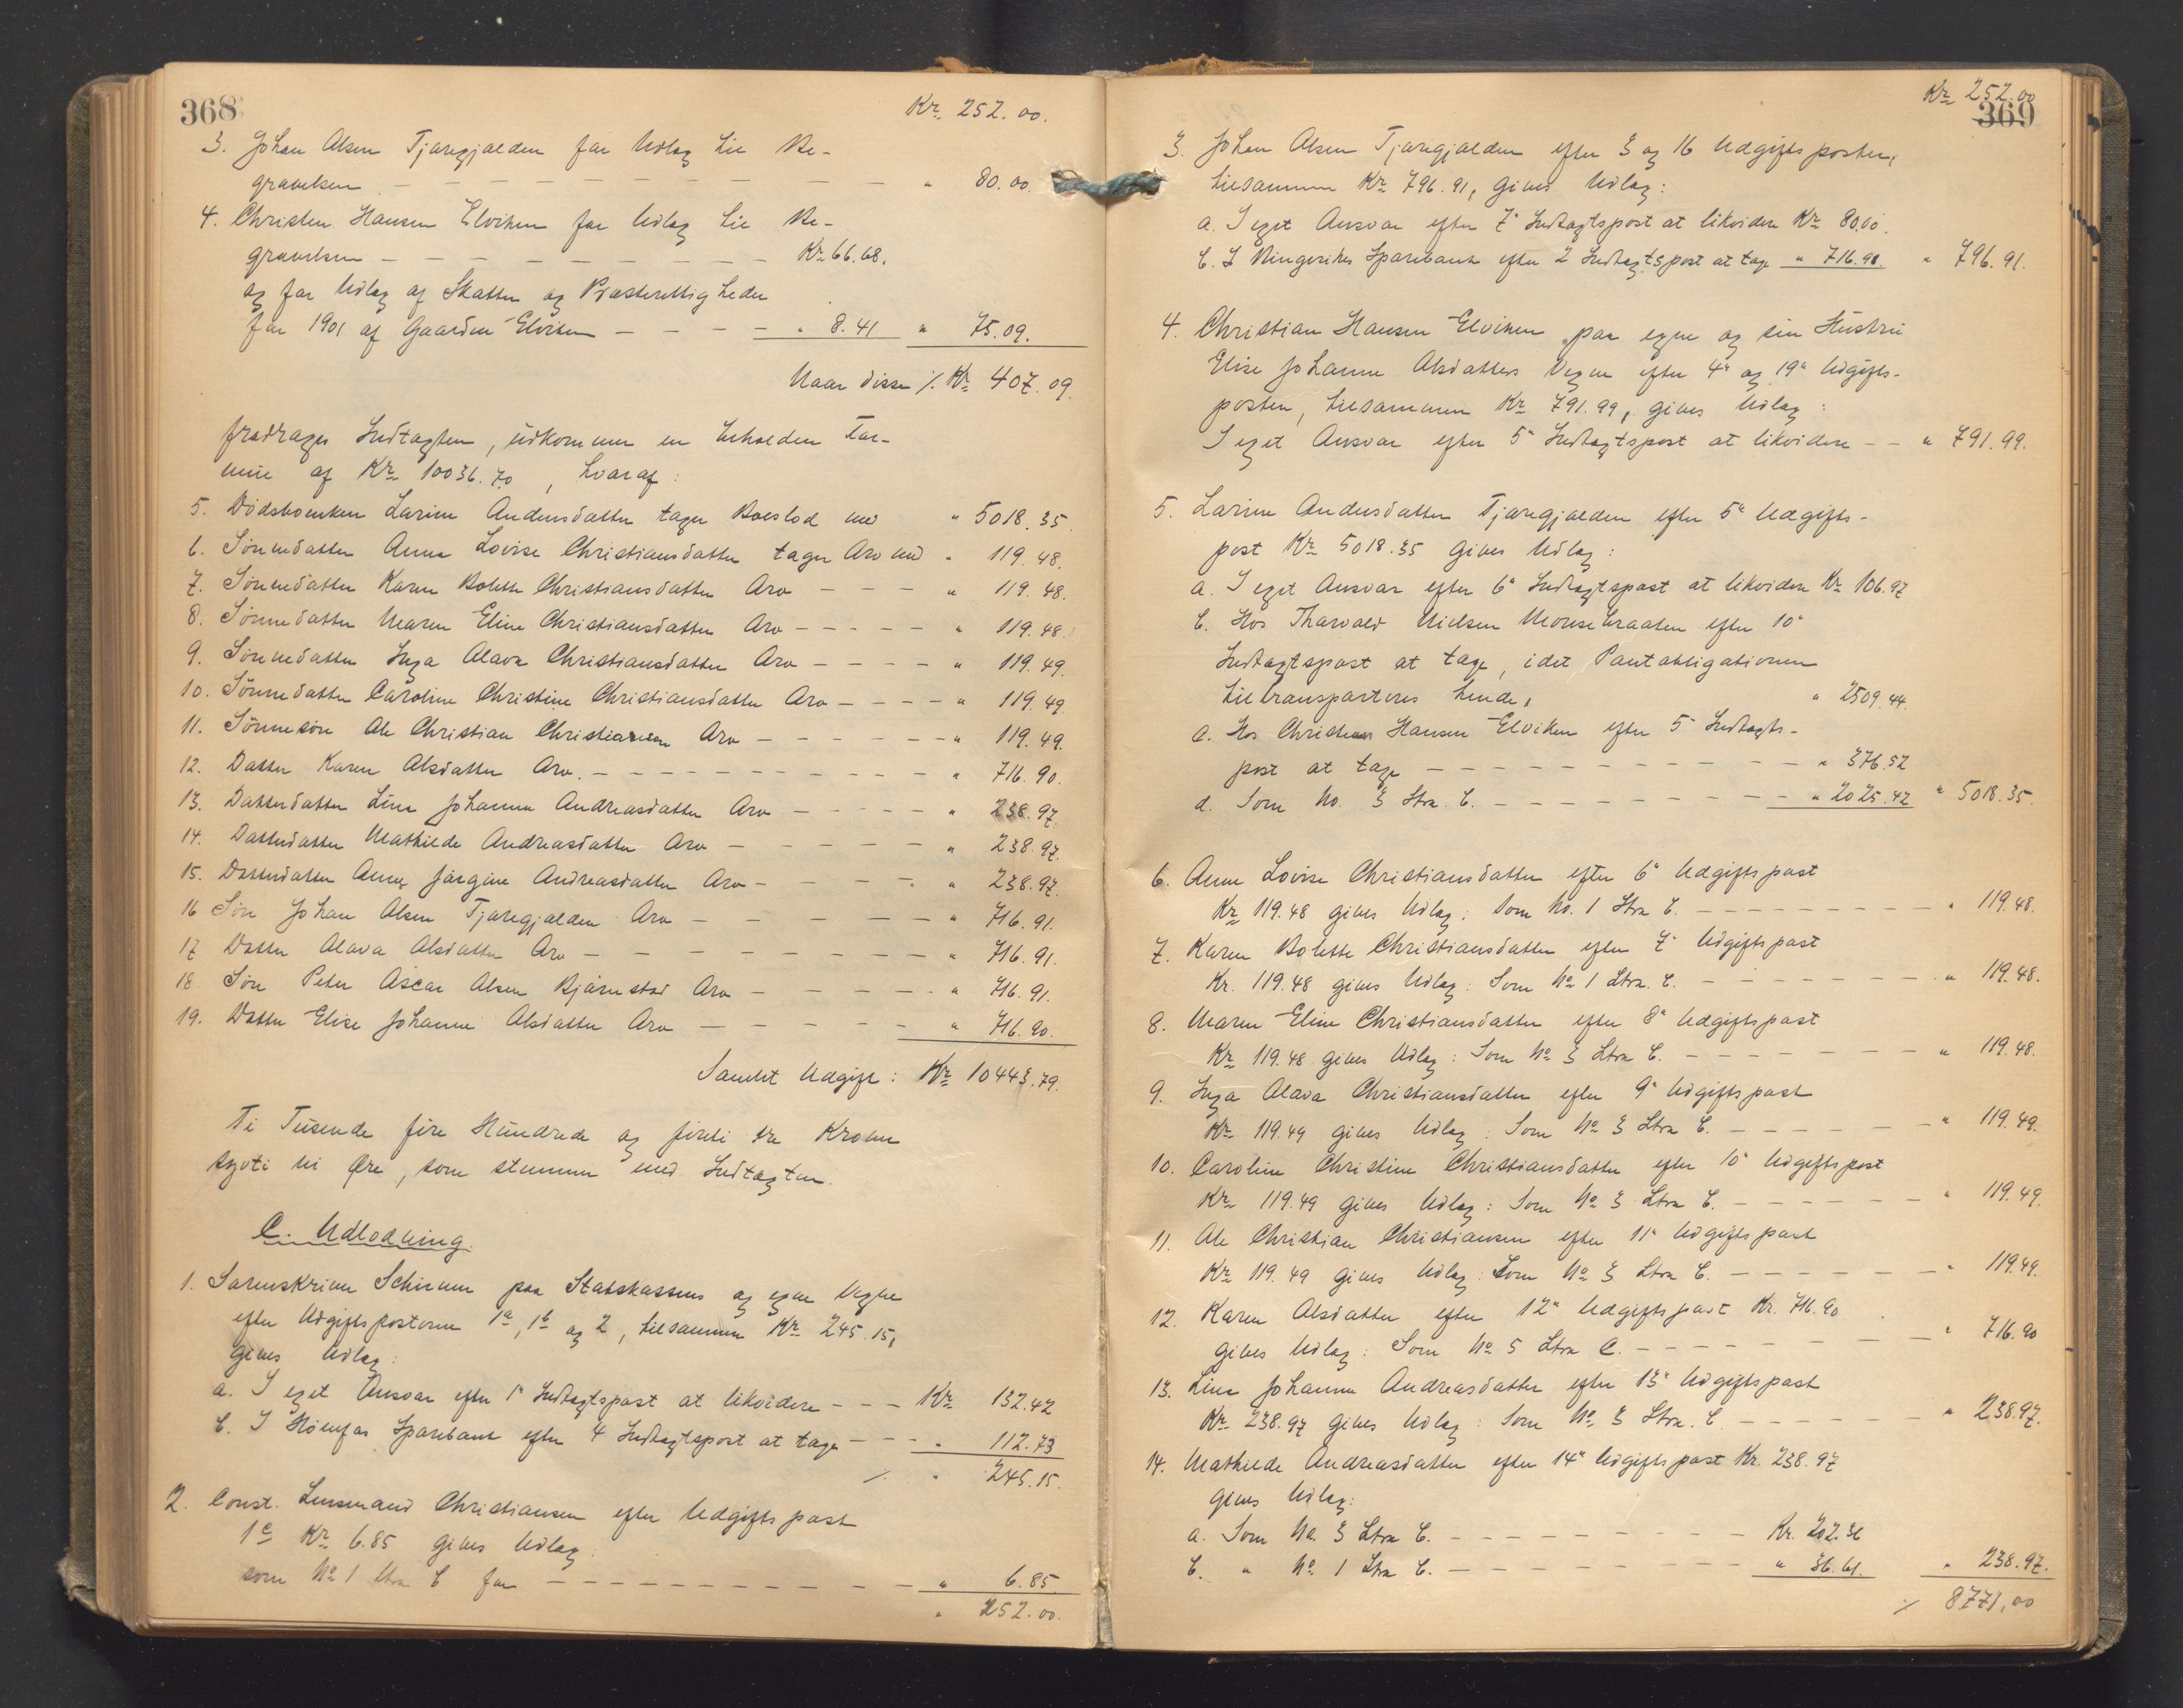 368
Kr. 252.00.
3. Johan Olsen Tjæregjælden for Udlæg til Be-
gravelsen — — — — — — — — — " 80.00
4. Christen Hansen Elviken for Udlæg til Be-
gravelsen — — — — — — — — Kr. 66.68.
og for Udlæg af Skatter og Præsterettigheder
for 1901 af Gaarden Elviken — — — — " 8.41 " 75.09.
Naar disse ./. Kr. 407.09.
fradrages Indtægten, udkommer en beholden For-
mue af Kr. 10036.70, hvoraf:
5. Dødsboenken Larine Andersdatter tager Boeslod med " 5018.35.
6. Sønnedatter Anna Lovise Christiansdatter tager Arv med " 119.48.
7. Sønnedatter Karen Bolette Christiansdatter Arv — — — " 119.48.
8. Sønnedatter Maren Eline Christiansdatter Arv — — — — — " 119.48.
9. Sønnedatter Inga Olava Christiansdatter Arv — — — — " 119.49.
10. Sønnedatter Caroline Christine Christiansdatter Arv — — — — " 119.49.
11. Sønnesøn Ole Christian Christiansen Arv — — — — — — " 119.49.
12. Datter Karen Olsdatter Arv. — — — — — — — — — " 716.90.
13. Datterdatter Lina Johanna Andreasdatter Arv — — — — — " 238.97.
14. Datterdatter Mathilde Andreasdatter Arv — — — — — " 238.97.
15. Datterdatter Anna Jørgine Andreasdatter Arv — — — — . " 238.97.
16 Søn Johan Olsen Tjæregjælden Arv — — — — — — " 716.91.
17 Datter Olava Olsdatter Arv — — — — — — — — " 716.91.
18. Søn Peter Oscar Olsen Bjørnstad Arv — — — — — " 716.91.
19. Datter Elise Johanne Olsdatter Arv — — — — — " 716.90.
Samlet Udgift: Kr. 10443.79.
Ti Tusende fire Hundrede og firti tre Kroner
sytti ni Øre, som stemmer med Indtægten.
C. Udlodning.
1. Sorenskriver Schiemm paa Statskassens og egne Vegne
efter Udgiftsposterne 1a, 1b og 2, tilsammen Kr. 245.15,
gives Udlæg:
a. I eget Ansvar efter 1' Indtægtspost at likvidere — — — Kr. 132.42
b. I Hønefos Sparebank efter 4 Indtægtspost at tage — — — " 112.73
./. " 245.15.
2. Const. Lensmand Christiansen efter Udgiftspost
1c Kr. 6.85 gives Udlæg:
som No 1 Ltra b for — — — — — — — — — — " 6.85
" 252.00.
Kr. 252.00
369
3. Johan Olsen Tjæregjælden efter 3 og 16 Udgiftsposter,
tilsammen Kr. 796.91, gives Udlæg:
a. I eget Ansvar efter 7' Indtægtspost at likvidere Kr. 80.00.
b. I Ringerikes Sparebank efter 2 Indtægtspost at tage " 716.91. " 796.91.
4. Christian Hansen Elviken paa egne og sin Hustru
Elise Johanne Olsdatters Vegne efter 4' og 19' Udgifts-
poster, tilsammen Kr. 791.99, gives Udlæg:
I eget Ansvar efter 5' Indtægtspost at likvidere — — " 791.99.
5. Larine Andersdatter Tjæregjælden efter 5' Udgifts-
post Kr. 5018.35 gives Udlæg:
a. I eget Ansvar efter 6' Indtægtspost at likvidere Kr. 106.97
b. Hos Thorvald Nielsen Mousebraaten efter 10'
Indtægtspost at tage, idet Pantobligationen
tiltransporteres hende, " 2509.44.
c. Hos Christian Hansen Elviken efter 5' Indtægts-
post at tage — — — — — — — — — — " 376.52
d. Som No. 3 Ltra. b. — — — — — — — — — " 2025.42 " 5018.35.
6. Anna Lovise Christiansdatter efter 6' Udgiftspost
Kr. 119.48 gives Udlæg: Som No. 1 Ltra b. — — — — — — — — " 119.48.
7. Karen Bolette Christiansdatter efter 7' Udgiftspost
Kr. 119.48 gives Udlæg: Som No 1 Ltra. b. — — — — — — — " 119.48.
8. Maren Eline Christiansdatter efter 8' Udgiftspost
Kr. 119.48 gives Udlæg: Som No 3 Ltra b. — — — — — — — — " 119.48.
9. Inga Olava Christiansdatter efter 9' Udgiftspost
Kr. 119.49 gives Udlæg: Som No 3 Ltra b. — — — — — — — " 119.49.
10. Caroline Christine Christiansdatter efter 10' Udgiftspost
Kr. 119.49 gives Udlæg: Som No 3 Ltra b. — — — — — — " 119.49.
11. Ole Christian Christiansen efter 11' Udgiftspost
Kr. 119.49 gives Udlæg: Som No 3 Ltra b. — — — — — — " 119.49.
12. Karen Olsdatter efter 12' Udgiftspost Kr. 716.90
gives Udlæg: Som No 5 Ltra c. — — — — — — — " 716.90
13. Lina Johanna Andreasdatter efter 13' Udgiftspost
Kr. 238.97 gives Udlæg: Som No 3 Ltra. b. — — — — — " 238.97.
14. Mathilde Andreasdatter efter 14' Udgiftspost Kr. 238.97
gives Udlæg:
a. Som No. 3 Ltra b. — — — — — — — — — Kr. 202.36
b. " No. 1 Ltra b. — — — — — — — — — " 36.61. " 238.97.
./. 8771,00